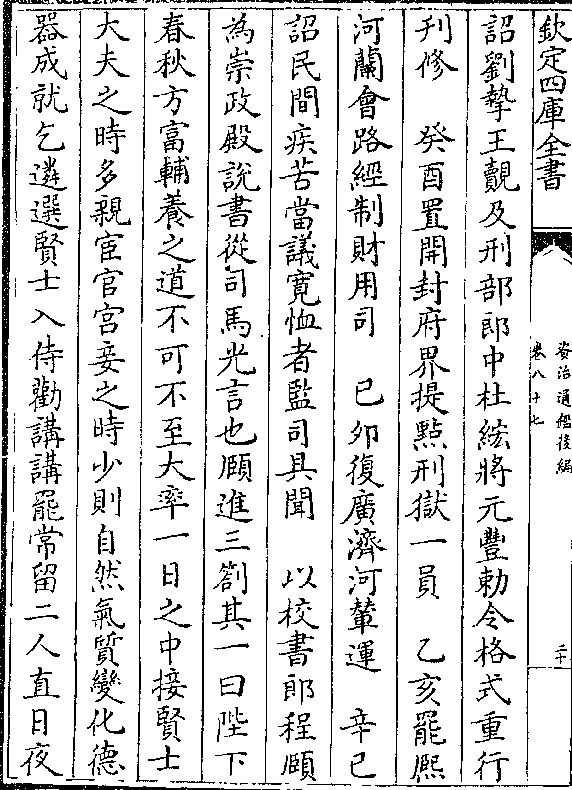 欽定四庫全書
資治通鑑後編
卷八十七
二十
詔劉摯王覿及刑部郎中杜紘將元豐勅令格式重行
刋修　癸酉置開封府界提點刑獄一員　乙亥罷熙
河蘭會路經制財用司　已夘復廣濟河輦運　辛已
詔民間疾苦當議寛恤者監司具聞　以校書郎程頤
為崇政殿說書從司馬光言也頤進三劄其一曰陛下
春秋方富輔養之道不可不至大率一日之中接賢士
大夫之時多親宦官宫妾之時少則自然氣質變化德
器成就乞遴選賢士入侍勸講講罷常留二人直日夜